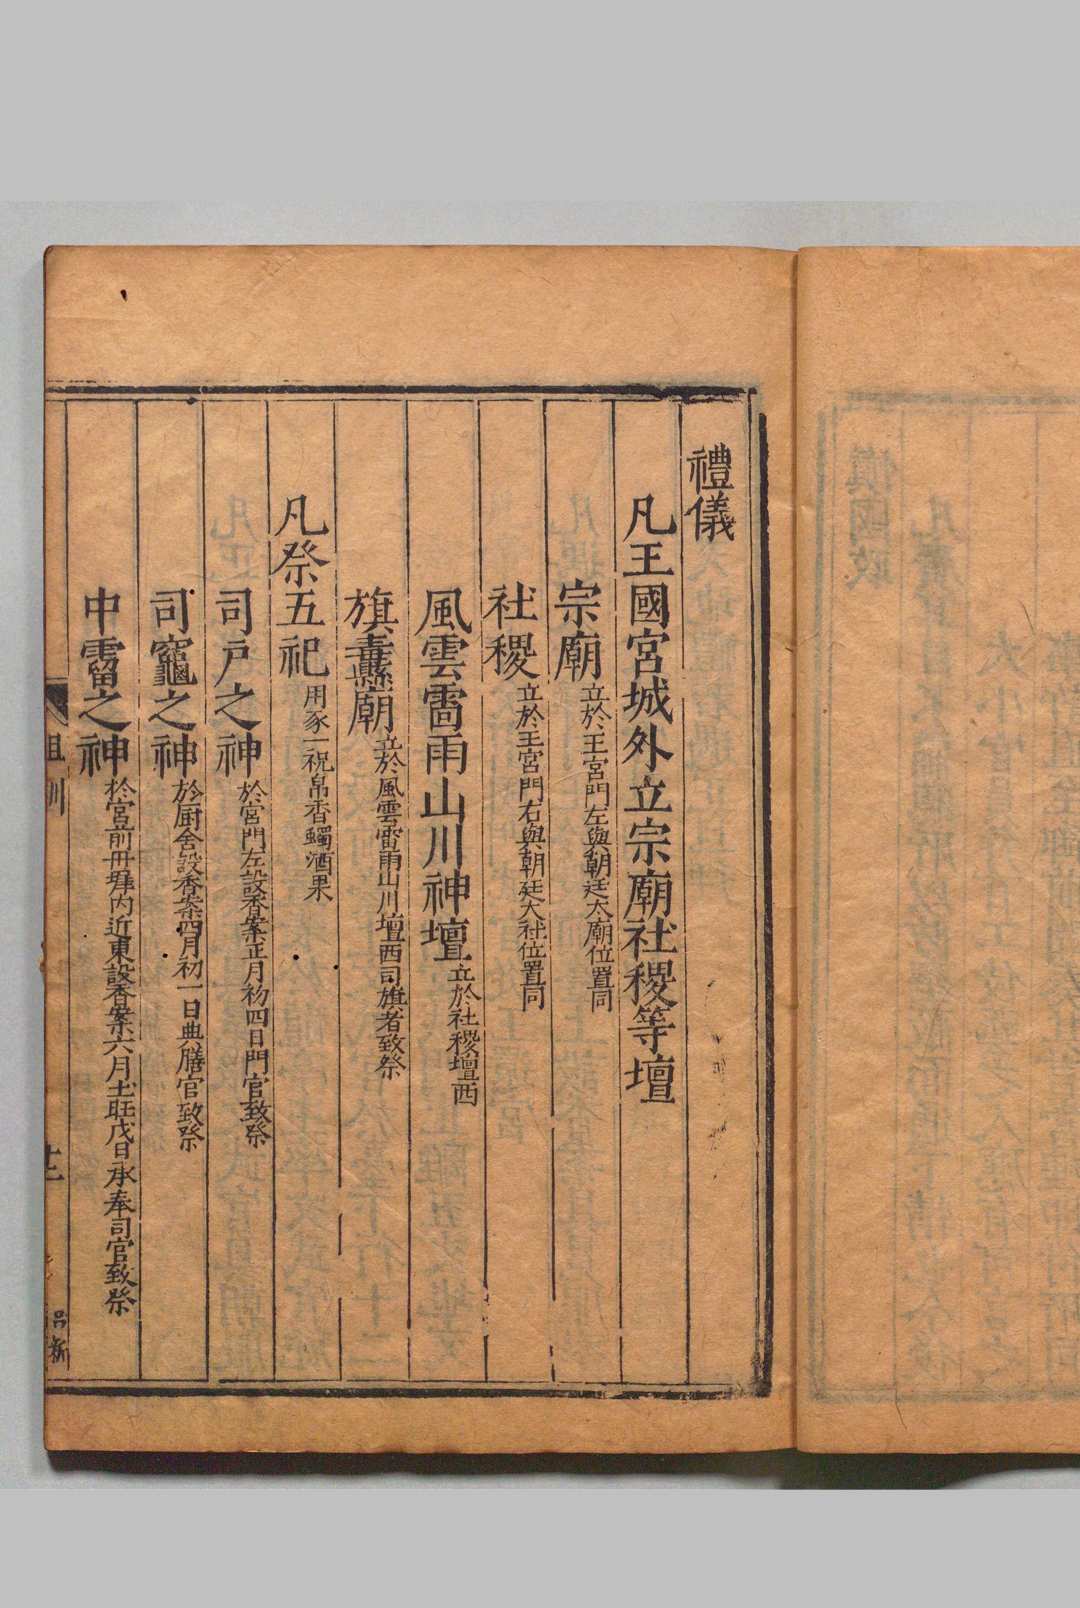 禮儀
凡王國宮城外立宗廟社稷等壇
宗廟立於王宮門左與朝廷太廟位置同
社稷立於王宮門右與朝廷大社位置同
風雲雷雨山川神壇立於社稷壇西
旗纛廟立於風雲雷雨山川壇西司旗者致祭
凡祭五祀用豕一祝帛香燭酒果
司戶之神於宮門左設香案正月初四日門官致祭
司竈之神於厨舍設香案四月初一日典膳官致祭
中霤之神於宮前丹墀內近東設香案六月土旺戊日承奉司官致祭
祖訓